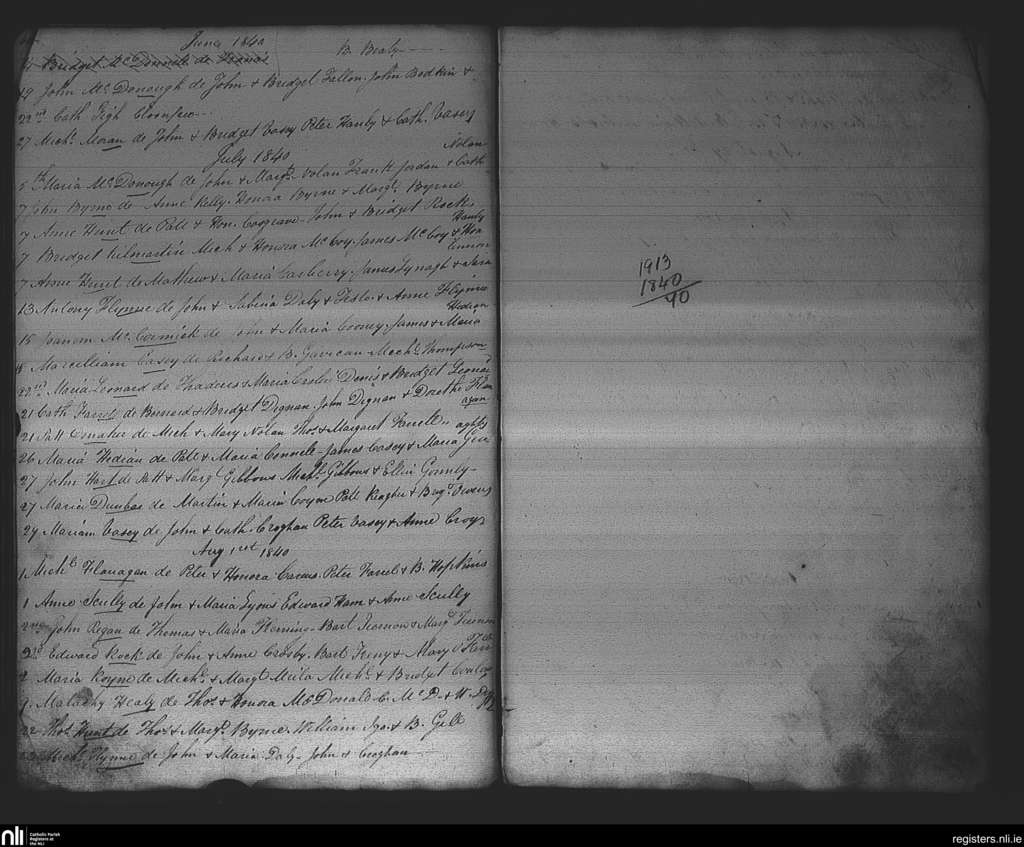 June 1840
B. Bealy
Bridget Mc Donnell de Francis
19 John Mc Donough de John & Bridget Fallon. John Bodkin &
22nd Cath Tigh Cloonfew
27 Michl Moran de John & Bridget Casey Peter Hanly & Cath. Casey
July 1840
Nolan
5th Maria Mc Donough de John & Margt Nolan Frank Jordan & Cath
7 John Byrne de Anne Kelly. Honora Byrne & Margt Byrne
7 Anne Hunt de Patt & Hon. Cosgrave John & Bridget Rock.
Hanly
7 Bridget Kilmartin Mich & Honora McCoy James McCoy & Hon
7 Anne Hunt de Mathew & Maria Carberry. James Lynagh & Sera
13 Antony Flynne de John & Sabina Daly & Anne Flynne
Hedian
15 Mc Cormick de & Maria Cooney. James & Maria
18 Casey de Richard & B. Gavican Mechl Thompson
22nd Maria Leonard de Thadeus & Maria Denis & Bridget Leonard
21 Cath Farrel de Bernerd & Bridget Dignan John Dignan & Dorothe Flan
agan
21 Patt de Mich & Mary Nolan Thos & Margaret Farrell
aghty
26 Maria Hedian de Patt & Maria Connele James Casey & Maria Ger
27 John Hart de Patt & Marg Gibbons Michl Gibbons & Ellen Gormly
27 Maria Dunbar de Martin & Maria Coyne Patt Keagher & Bregt Owens
29 Mariam Casey de John & Cath. Croghan Peter Casey & Anne Croys
Aug 1rst 1840
1 Michl Flanagan de Peter & Honora Peter Farrel & B. Hopkins
1 Anne Scully de John & Maria Lyons Edward Ham & Anne Scully
2nd John Regan de Thomas & Maria Fleming Bart & Margt
2nd Edward Rock de John & Anne Crosby. Bart Feeny & Mary
2 Maria Royne de Mechl & Margt Mechl & Bridget
9. Malachy Healy de Thos & Honora Mc Donald C. Mc D. & H.
22 Thos Hunt de Thos & Margt Byrne. William & B. Gill
Mechl Flynne de John & Maria Daly John & Croghan
1913
1840
90
nli
Catholic Parish
Registers at
the NLI
registers.nli.ie